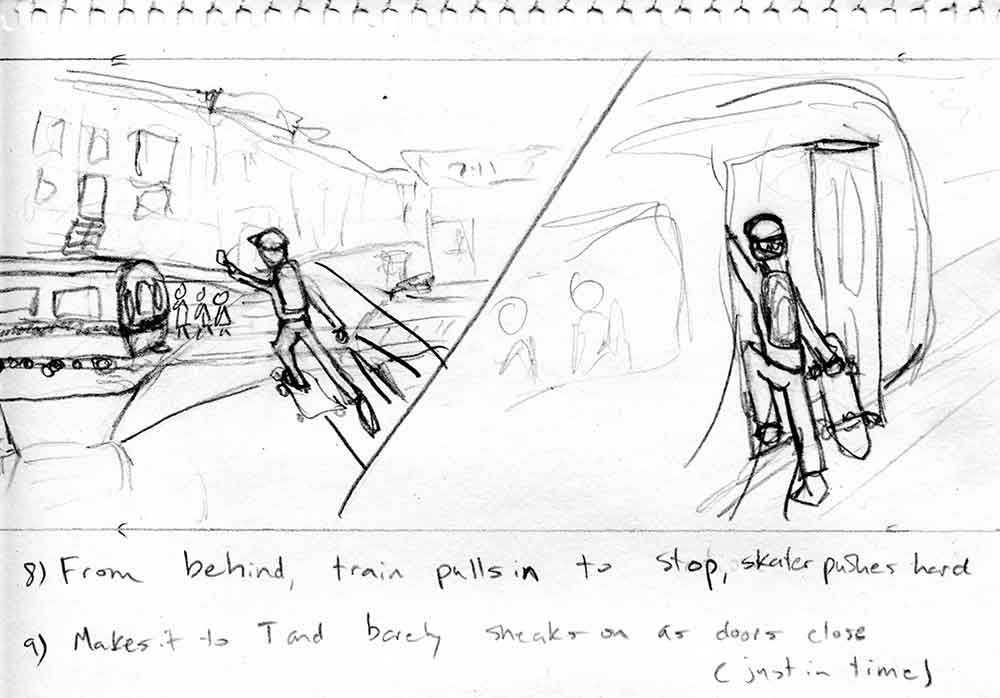 7-11
8) From behind, train pulls in to stop, skater pushes hard
9) Makes it to T and barely sneaks on as doors close
(just in time)